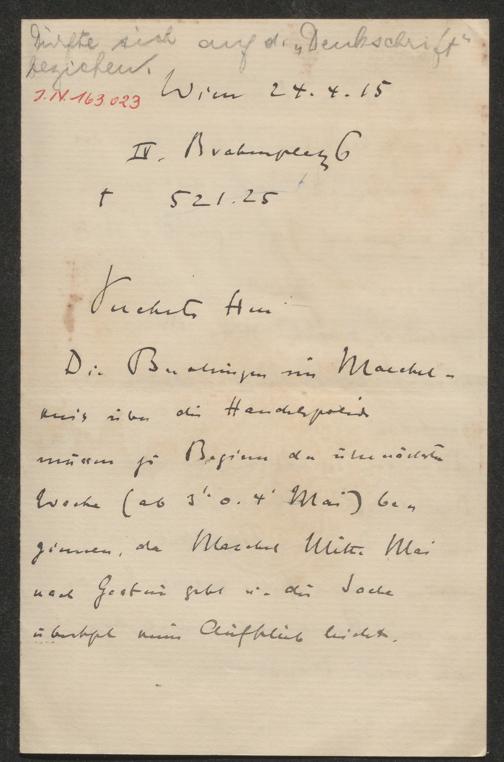 Dürfte sich auf d. „Denkschrift“
beziehen.
J.N. 163.023
Wien 24.4.15
IV. Brahmsplatz 6
t 521.25
Verehrter Herr
Die Beratungen im Marchet-
kreis über die Handelspolitik
müssen zu Beginn der übernächsten
Woche (ab 3t o. 4t Mai) be-
ginnen, da Marchet Mitte Mai
nach Gastein geht u. die Sache
überhpt keinen Aufschub leidet.